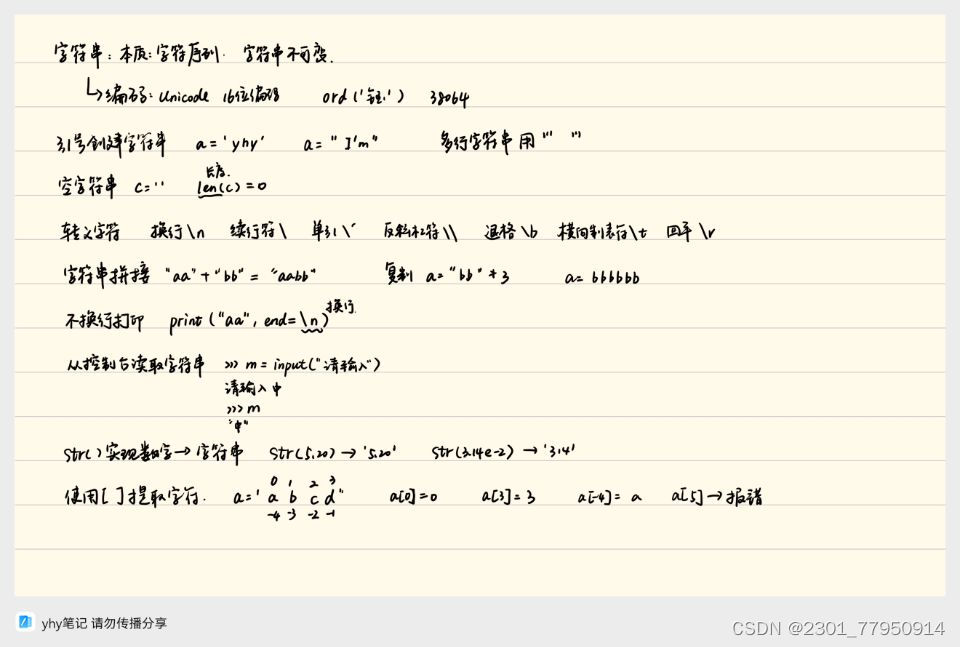 字符串：本质：字符序列. 字符串不可变.
↳编码：Unicode 16位编码 ord('钰') 38064
引号创建字符串 a='yhy' a="I'm" 多行字符串用''' '''
长度.
空字符串 c='' len(c)=0
转义字符 换行\n 续行符\ 单引\' 反斜杠符\\ 退格\b 横向制表符\t 回车\r
字符串拼接 "aa"+"bb"="aabb" 复制 a="bb"*3 a=bbbbbb
换行.
不换行打印 print("aa",end=\n)
从控制台读取字符串 >>> m=input("请输入")
请输入中
>>> m
"中"
str()实现数字→字符串 str(5.20)→'5.20' str(3.14e-2)→'3.14'
0 1 2 3
使用[ ]提取字符. a='a b c d" a[0]=0 a[3]=3 a[-4]=a a[5]→报错
-4 -3 -2 -1
yhy笔记 请勿传播分享
CSDN @2301_77950914